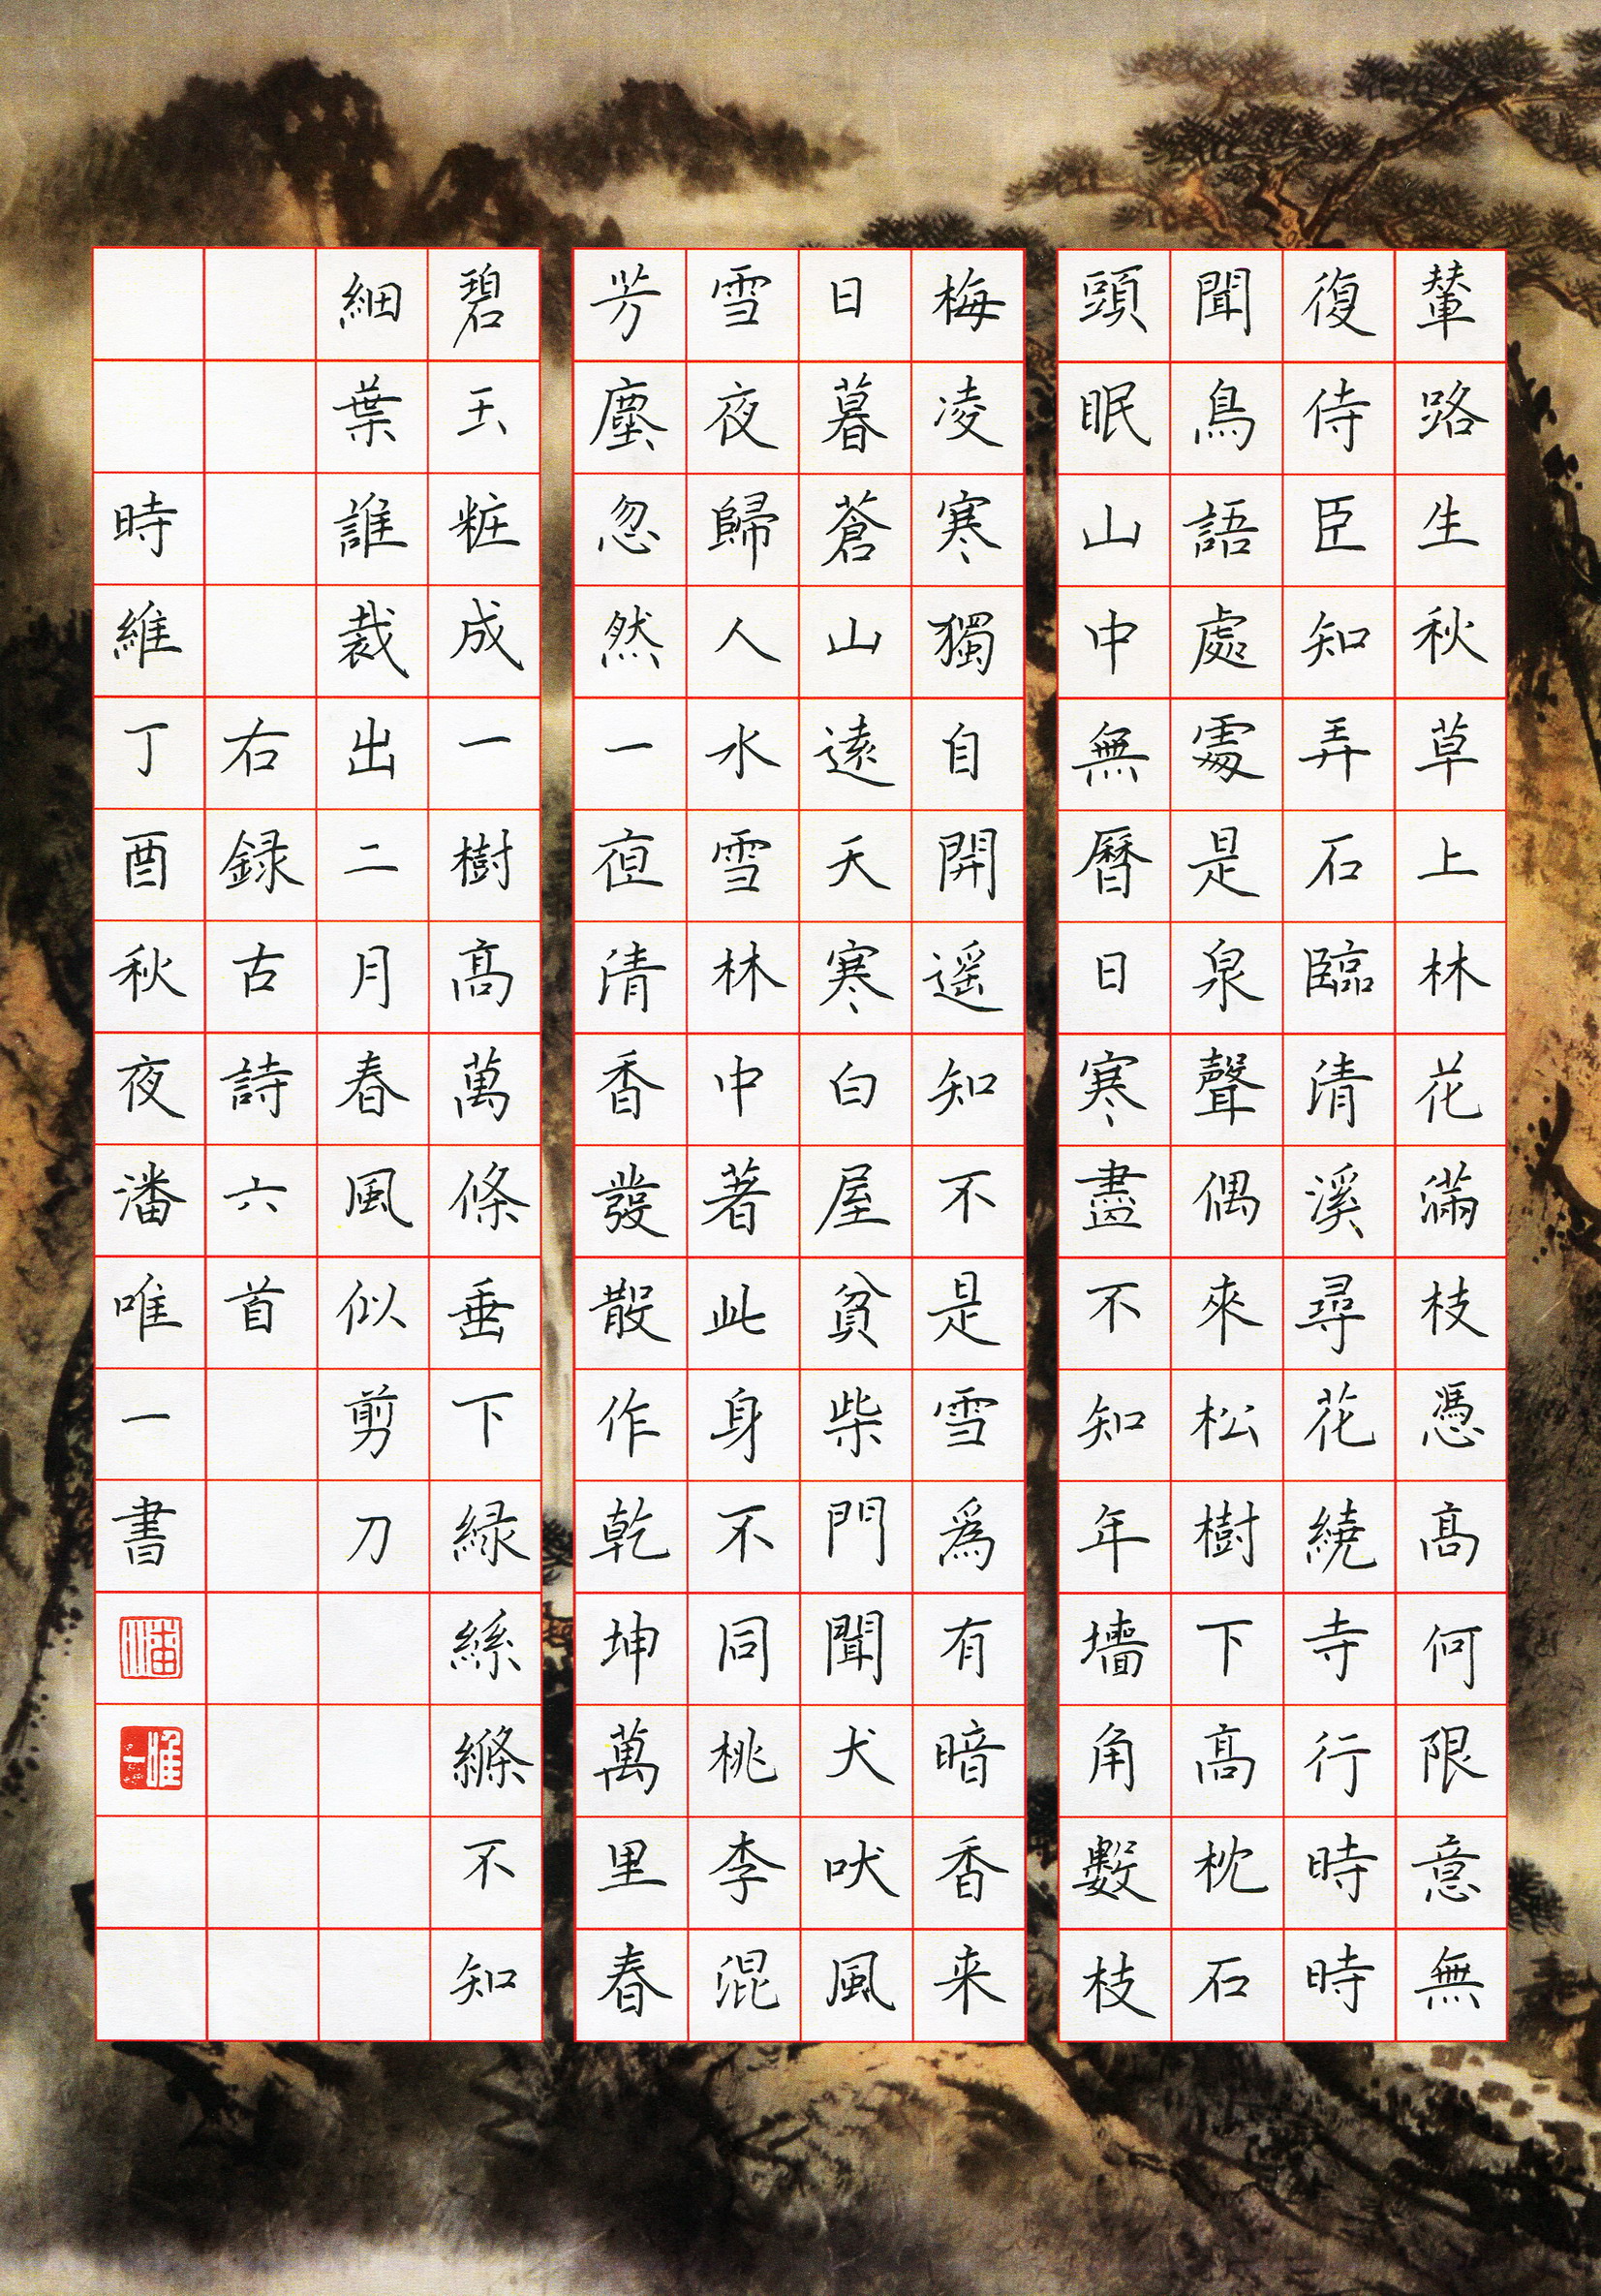 輦路生秋草上林花滿枝憑高何限意無
復侍臣知弄石臨清溪尋花繞寺行時時
聞鳥語處處是泉聲偶來松樹下高枕石
頭眠山中無曆日寒盡不知年墻角數枝
梅凌寒獨自開遥知不是雪爲有暗香来
日暮蒼山遠天寒白屋貧柴門聞犬吠風
雪夜歸人水雪林中著此身不同桃李混
芳塵忽然一夜清香發散作乾坤萬里春
碧玉粧成一樹高萬條垂下緑絲絛不知
細葉誰裁出二月春風似剪刀
右録古詩六首
時維丁酉秋夜潘唯一書
潘
唯一